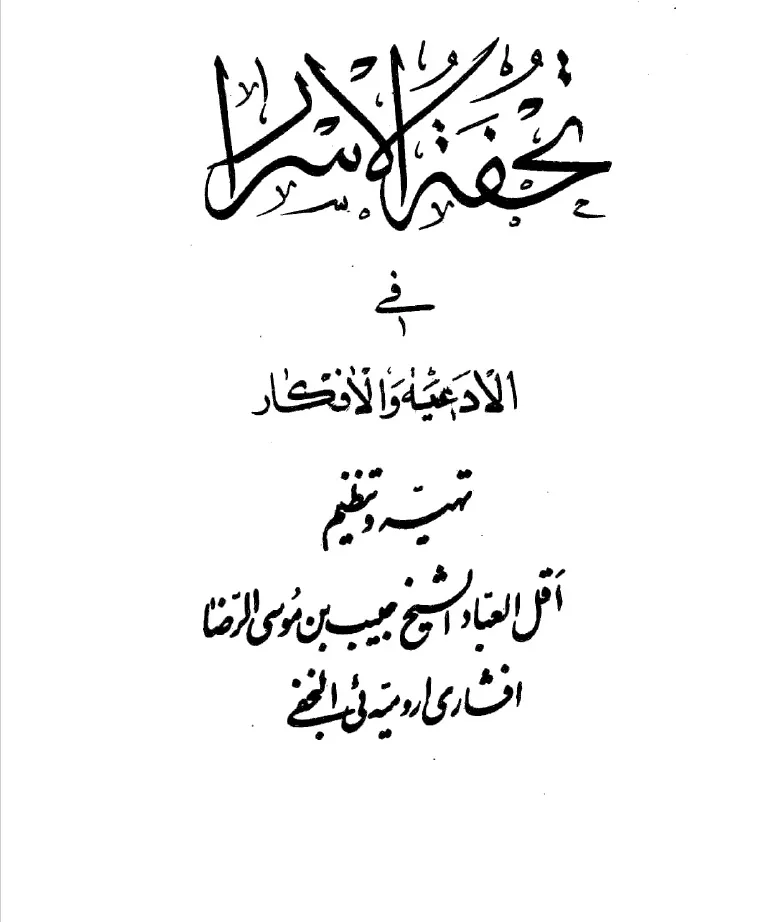 تحفة الاسرار
في
الادعیة والافکار
تهیه و تنظیم
اقل العباد الشیخ حبیب بن موسی الرضا
افشاری ارومیّه ئی النجفی